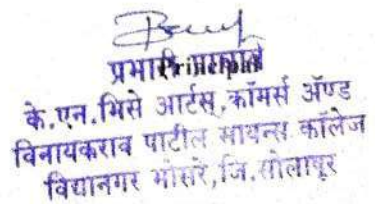 प्रभारी प्राचार्य
Principal
के.एन.भिसे आर्टस्,कॉमर्स ॲण्ड
विनायकराव पाटील सायन्स कॉलेज
विद्यानगर भोसरे,जि.सोलापूर